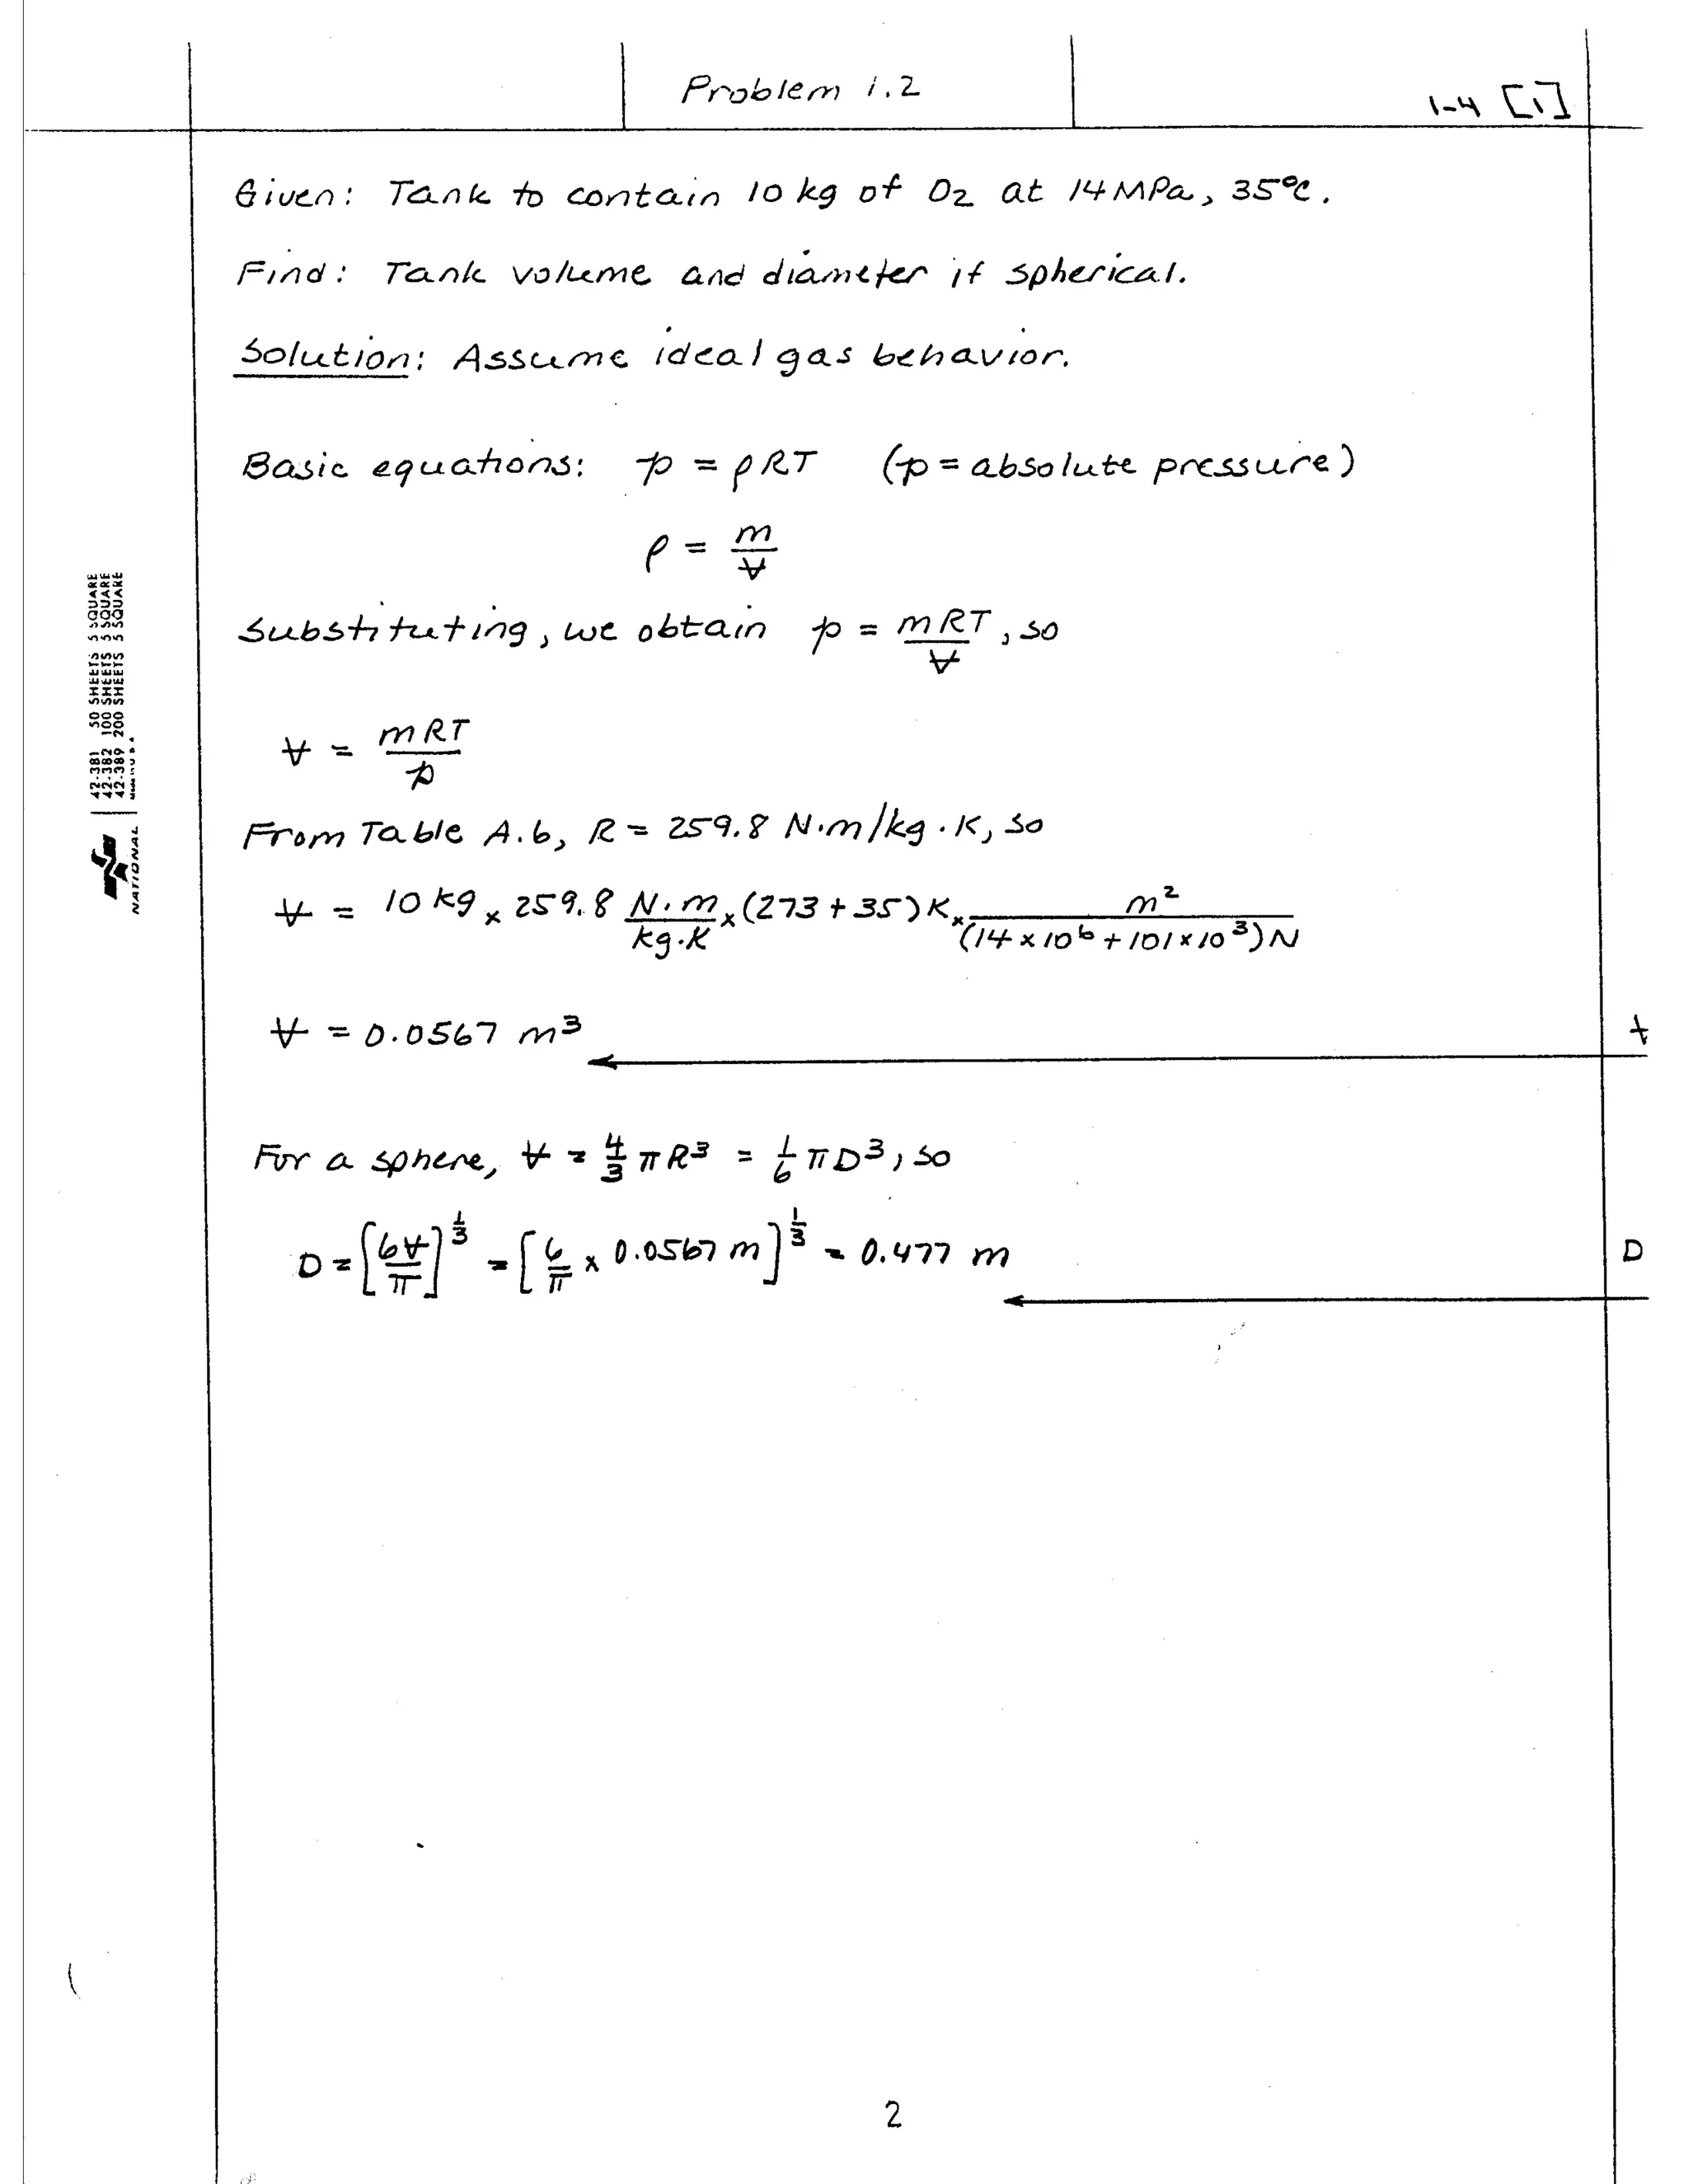 Problem 1.2
1-4 [1]
Given: Tank to contain 10 kg of O2 at 14 MPa, 35°C.
Find: Tank volume and diameter if spherical.
Solution: Assume ideal gas behavior.
Basic equations: p = ρRT (p = absolute pressure)
ρ = m/V
Substituting, we obtain p = mRT/V, so
V = mRT/p
From Table A.6, R = 259.8 N·m/kg·K, so
V = 10 kg × 259.8 N·m/kg·K × (273 + 35) K × m²/(14 × 10⁶ + 101 × 10³) N
V = 0.0567 m³
V
For a sphere, V = 4/3 πR³ = 1/6 πD³, so
D = [6V/π]^1/3 = [6/π × 0.0567 m]^1/3 = 0.477 m
D
2
42-381 50 SHEETS 5 SQUARE
42-382 100 SHEETS 5 SQUARE
42-389 200 SHEETS 5 SQUARE
NATIONAL